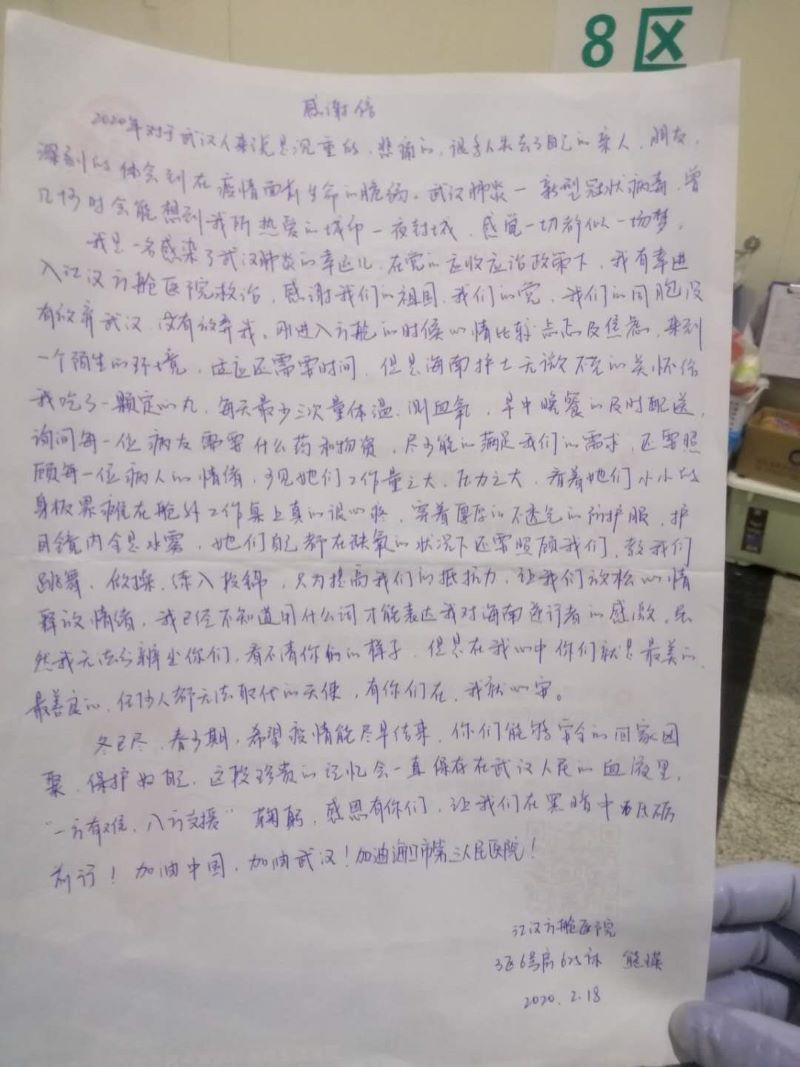 8区
感谢信
2020年对于武汉人来说是沉重的，悲痛的，很多人失去了自己的亲人，朋友，
深刻的体会到在疫情面前生命的脆弱。武汉肺炎一新型冠状病毒，曾
几何时会能想到我所热爱的城市一夜封城，感觉一切都似一场梦。
我是一名感染了武汉肺炎的幸运儿，在党的应收应治政策下，我有幸进
入江汉方舱医院救治，感谢我们的祖国，我们的党，我们的同胞没
有放弃武汉，没有放弃我。刚进入方舱的时候心情比较忐忑及焦急，来到
一个陌生的环境，适应还需要时间，但是海南护士无微不至的关怀给
我吃了一颗定心丸，每天最少三次量体温、测血氧，早中晚餐的及时配送，
询问每一位病友需要什么药和物资，尽可能的满足我们的需求，还需照
顾每一位病人的情绪，可见她们工作量之大，压力之大，看着她们小小的
身板累瘫在舱外工作桌上真的很心疼，穿着厚厚的不透气的防护服，护
目镜内全是水雾，她们自己都在缺氧的状况下还需照顾我们，教我们
跳舞、做操、练八段锦，只为提高我们的抵抗力，让我们放松心情
释放情绪，我已经不知道用什么词才能表达我对海南逆行者的感激，虽
然我无法分辨出你们，看不清你们的样子，但是在我心中你们就是最美的，
最善良的，任何人都无法取代的天使，有你们在，我就心安。
冬已尽，春可期，希望疫情能尽早结束，你们能够安全的回家团
聚，保护好自己，这段珍贵的记忆会一直保存在武汉人民的血液里，
“一方有难，八方支援”鞠躬，感恩有你们，让我们在黑暗中砥砺
前行！加油中国，加油武汉！加油海口市第三人民医院！
江汉方舱医院
3区6号房625床 熊
2020.2.18